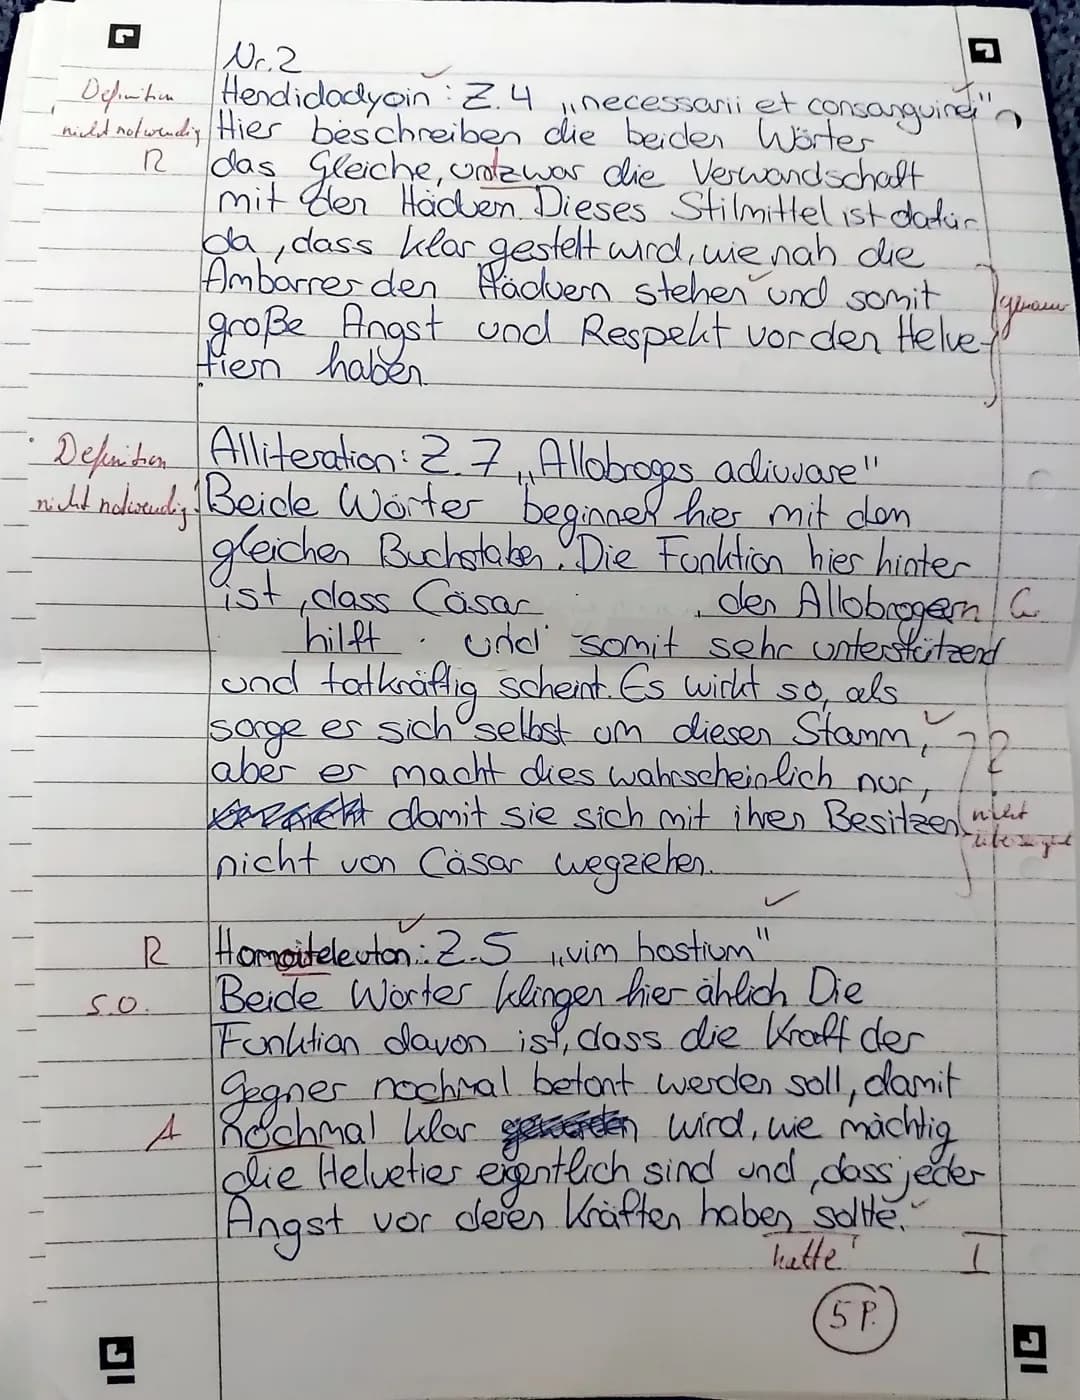 Nr. 2
Definition
Hendidadyoin : Z. 4 „necessarii et consanguinei"
nicht notwendig
Hier beschreiben die beiden Wörter
R
das Gleiche, undzwar die Verwandschaft
mit den Häduern. Dieses Stilmittel ist dafür
da, dass klar gestellt wird, wie nah die
Ambarrer den Häduern stehen und somit
genauer
große Angst und Respekt vor den Helve-
tiern haben.
Definition
Alliteration: Z. 7 „Allobroges adiuvare"
nicht notwendig!
Beide Wörter beginnen hier mit dem
gleichen Buchstaben. Die Funktion hier hinter
ist, dass Cäsar den Allobrogern
hilft und somit sehr unterstützend
und tatkräftig scheint. Es wirkt so, als
sorge er sich selbst um diesen Stamm,
aber er macht dies wahrscheinlich nur,
??
damit sie sich mit ihren Besitzen
nicht
nicht von Cäsar wegziehen.
R
Homoiteleuton: Z. 5 „vim hostium"
s.o.
Beide Wörter klingen hier ählich Die
Funktion davon ist, dass die Kraft der
Gegner nochmal betont werden soll, damit
A
nochmal klar wird, wie mächtig
die Helvetier eigentlich sind und, dass jeder
Angst vor deren Kräften haben sollte.
hatte!
I
5 P.